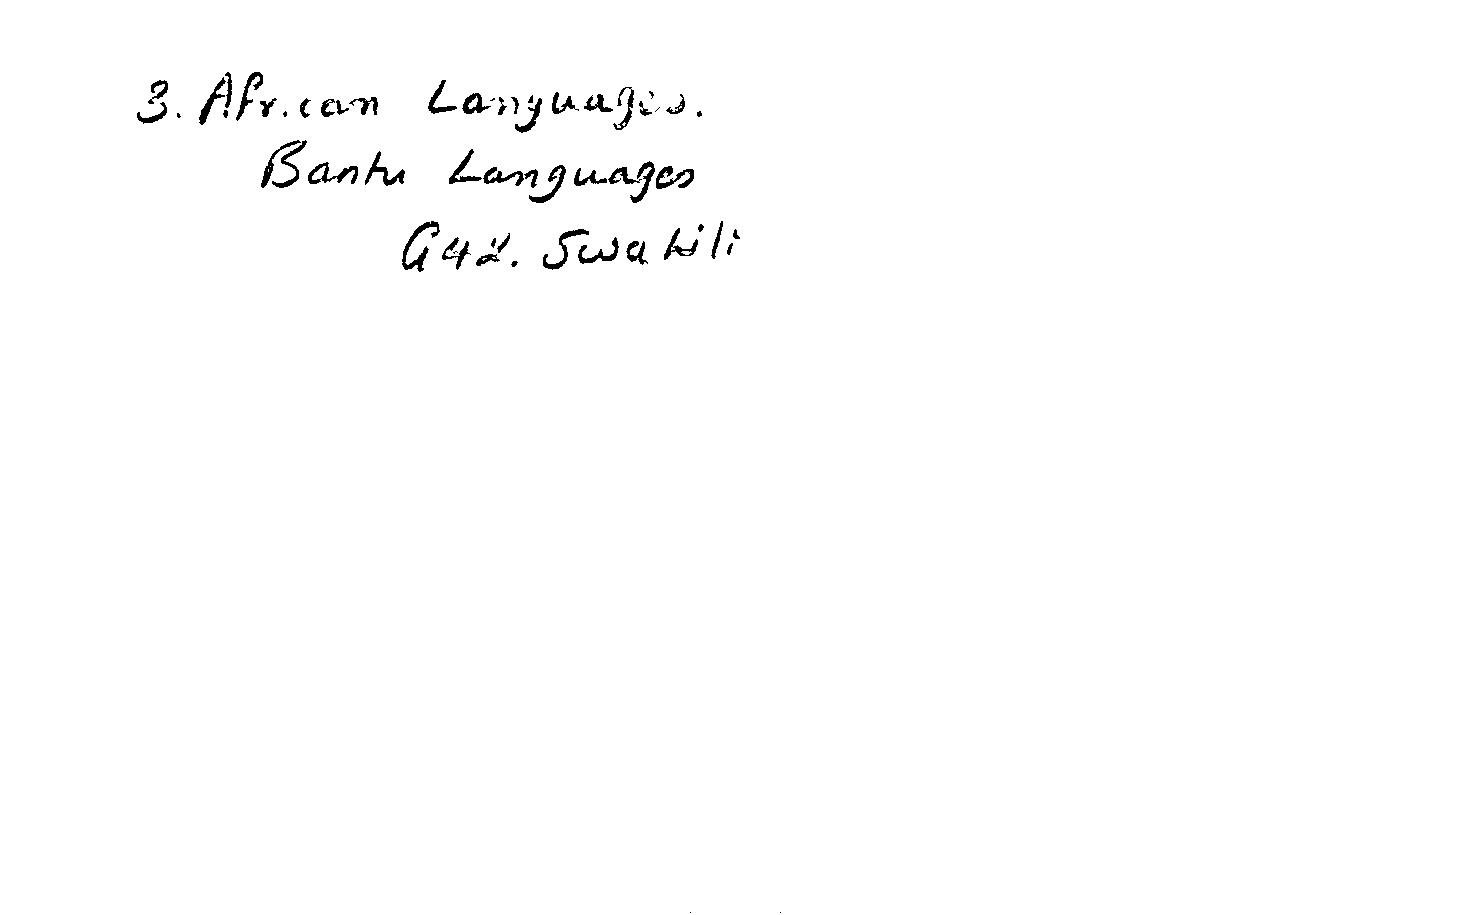 3. African Languages.
Bantu Languages
G42. Swahili